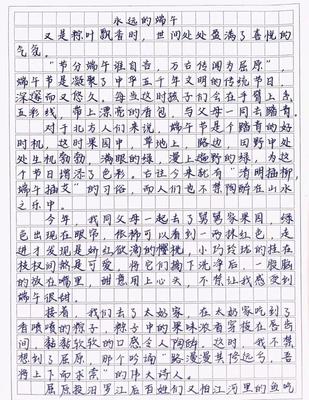 永远的端午
又是粽叶飘香时，世间处处盈满了喜悦的
气氛。
“节分端午谁自言，万古传闻为屈原”，
端午节是凝聚了中华五千年文明的传统节日，
深邃而又悠久。每当这时孩子们会在手臂上系
五彩线，带上漂亮的香包，与父母一同去踏青。
对于北方人们来说，端午节是个踏青的好
时机，这时果园中，草地上，路边，田野中处
处生机勃勃，满眼的绿，漫上遍野的绿，为这
个节日增添了色彩。古往今来就有“清明插柳，
端午插艾”的习俗，而人们也不禁陶醉在山水
之乐中。
今年，我同父母一起去了舅舅家果园，绿
色出现在眼帘，依稀可以看到一两抹红色，走
进才发现是娇红欲滴的樱桃，小巧玲珑的挂在
枝杈间煞是可爱，将它们摘下洗净后，一股脑
的放在嘴里，甜意用上心头，不禁让我感受到
端午很甜。
接着，我们去了太奶家，在太奶家吃到了
香喷喷的粽子，粽子中的果味浓香穿梭在唇齿
间，黏黏软软的口感令人陶醉。这时，我不禁
想到了屈原，那个吟诵“路漫漫其修远兮，吾
将上下而求索”的伟大诗人。
屈原投汨罗江后百姓们又怕江河里的鱼吃